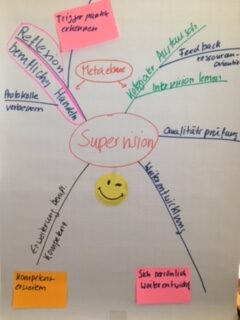 Trigger punkte
erkennen
Reflexion
beruflichen Handelns
Metaebene
kollegialer Austausch
Feedback
ressourcen-
orientiert
Intervision lernen
Protokolle
verbessern
Supervision
Qualitätsprüfung
Erweiterung berufl.
Kompetenz
Weiterentwicklung
Kompetenz
erweitern
Sich persönlich
weiterentwickeln